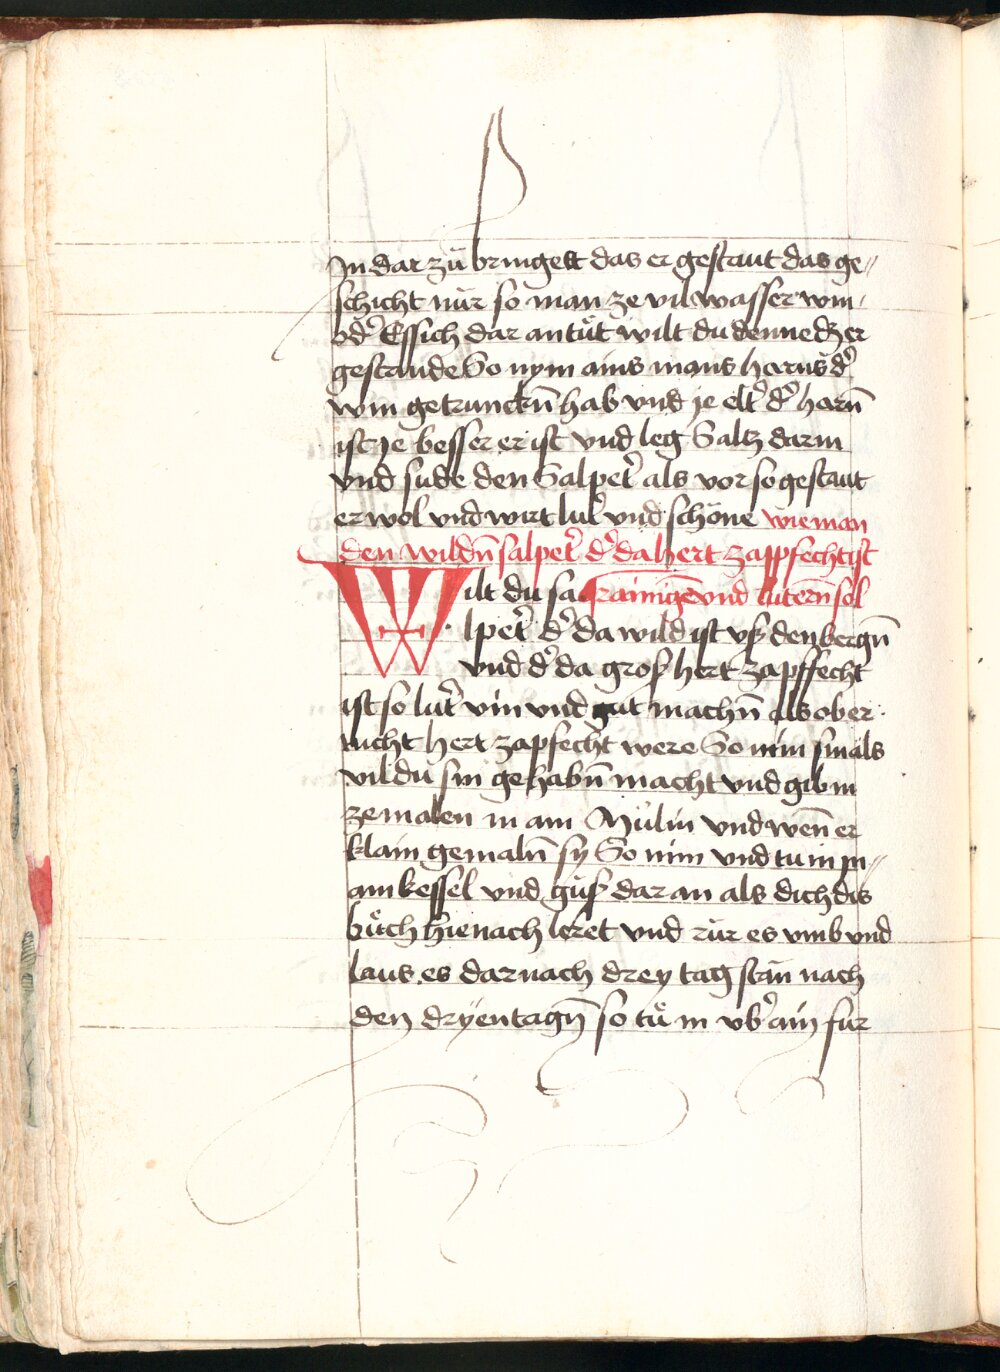 In dar zů bringest das er gestaut das ge„
schicht nür so man ze vil wasser win,
od̉ Essich dar an tůt wilt du denne dz er
gestande So nym ains mans harns d̉
win getrunckn̄ hab vnd ye elt̉ d̉ harn̄
ist ye besser er ist vnd leg Saltz darin
vnd süde den Salpet̉ als vor so gestaut
er wol vnd wirt lut̉ vnd schöne wie man
den wildn̄ salpet̉ d̉ da hert zappfecht ist
Wilt du sa rainigē vnd lutern̄ sol
lpet̉ d̉ da wild ist vß den bergn̄
vnd d̉ da groß hert zapffecht
ist so lut̉ vin vnd gut machn̄ als ob er
nicht hert zapfecht were So nim sin als
vil du sin gehabn̄ macht vnd gib in
ze malen in ain Mülin vnd wen̄ er
klain gemaln̄ sy So nim vnd tu in in„
ain kessel vnd güß dar an als dich dis
bůch hienach leret vnd rür es vmb vnd
laus es darnach drey tag stăn nach
den dryen tagn̄ so tů in vb̉ ain fur